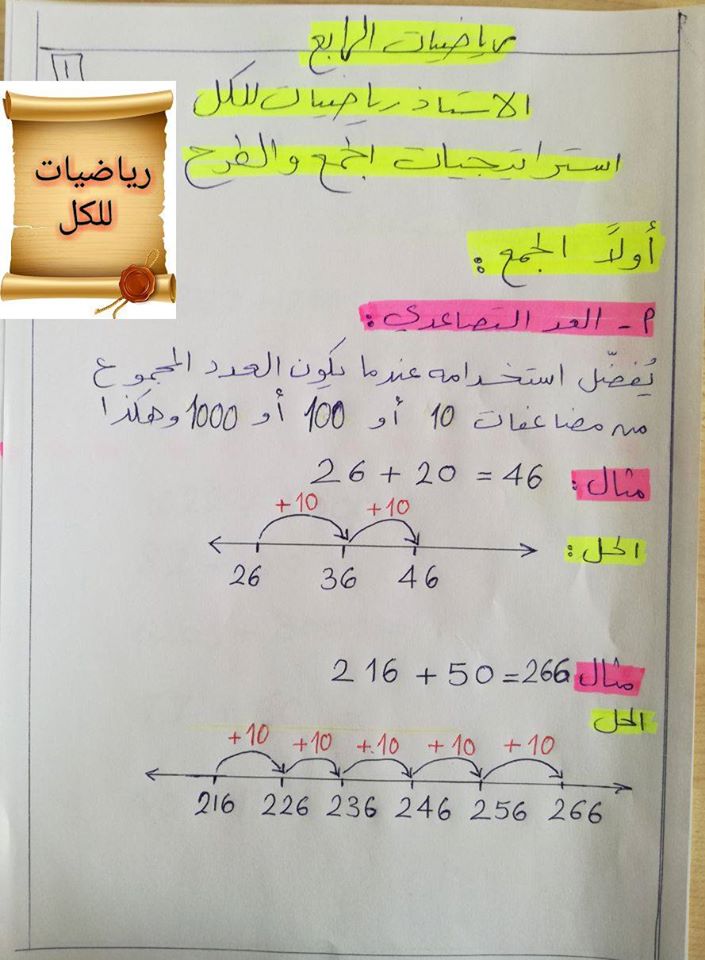 رياضيات الرابع
١
الاستاذ رياضيات للكل
استراتيجيات الجمع والطرح
رياضيات
للكل
أولاً الجمع :
٩ - العد التصاعدي :
يُفضّل استخدامه عندما يكون العدد المجموع
من مضاعفات 10 أو 100 أو 1000 وهكذا
مثال : 26 + 20 = 46
+10 +10
الحل :
26 36 46
مثال 216 + 50 = 266
الحل
+10 +10 +10 +10 +10
216 226 236 246 256 266